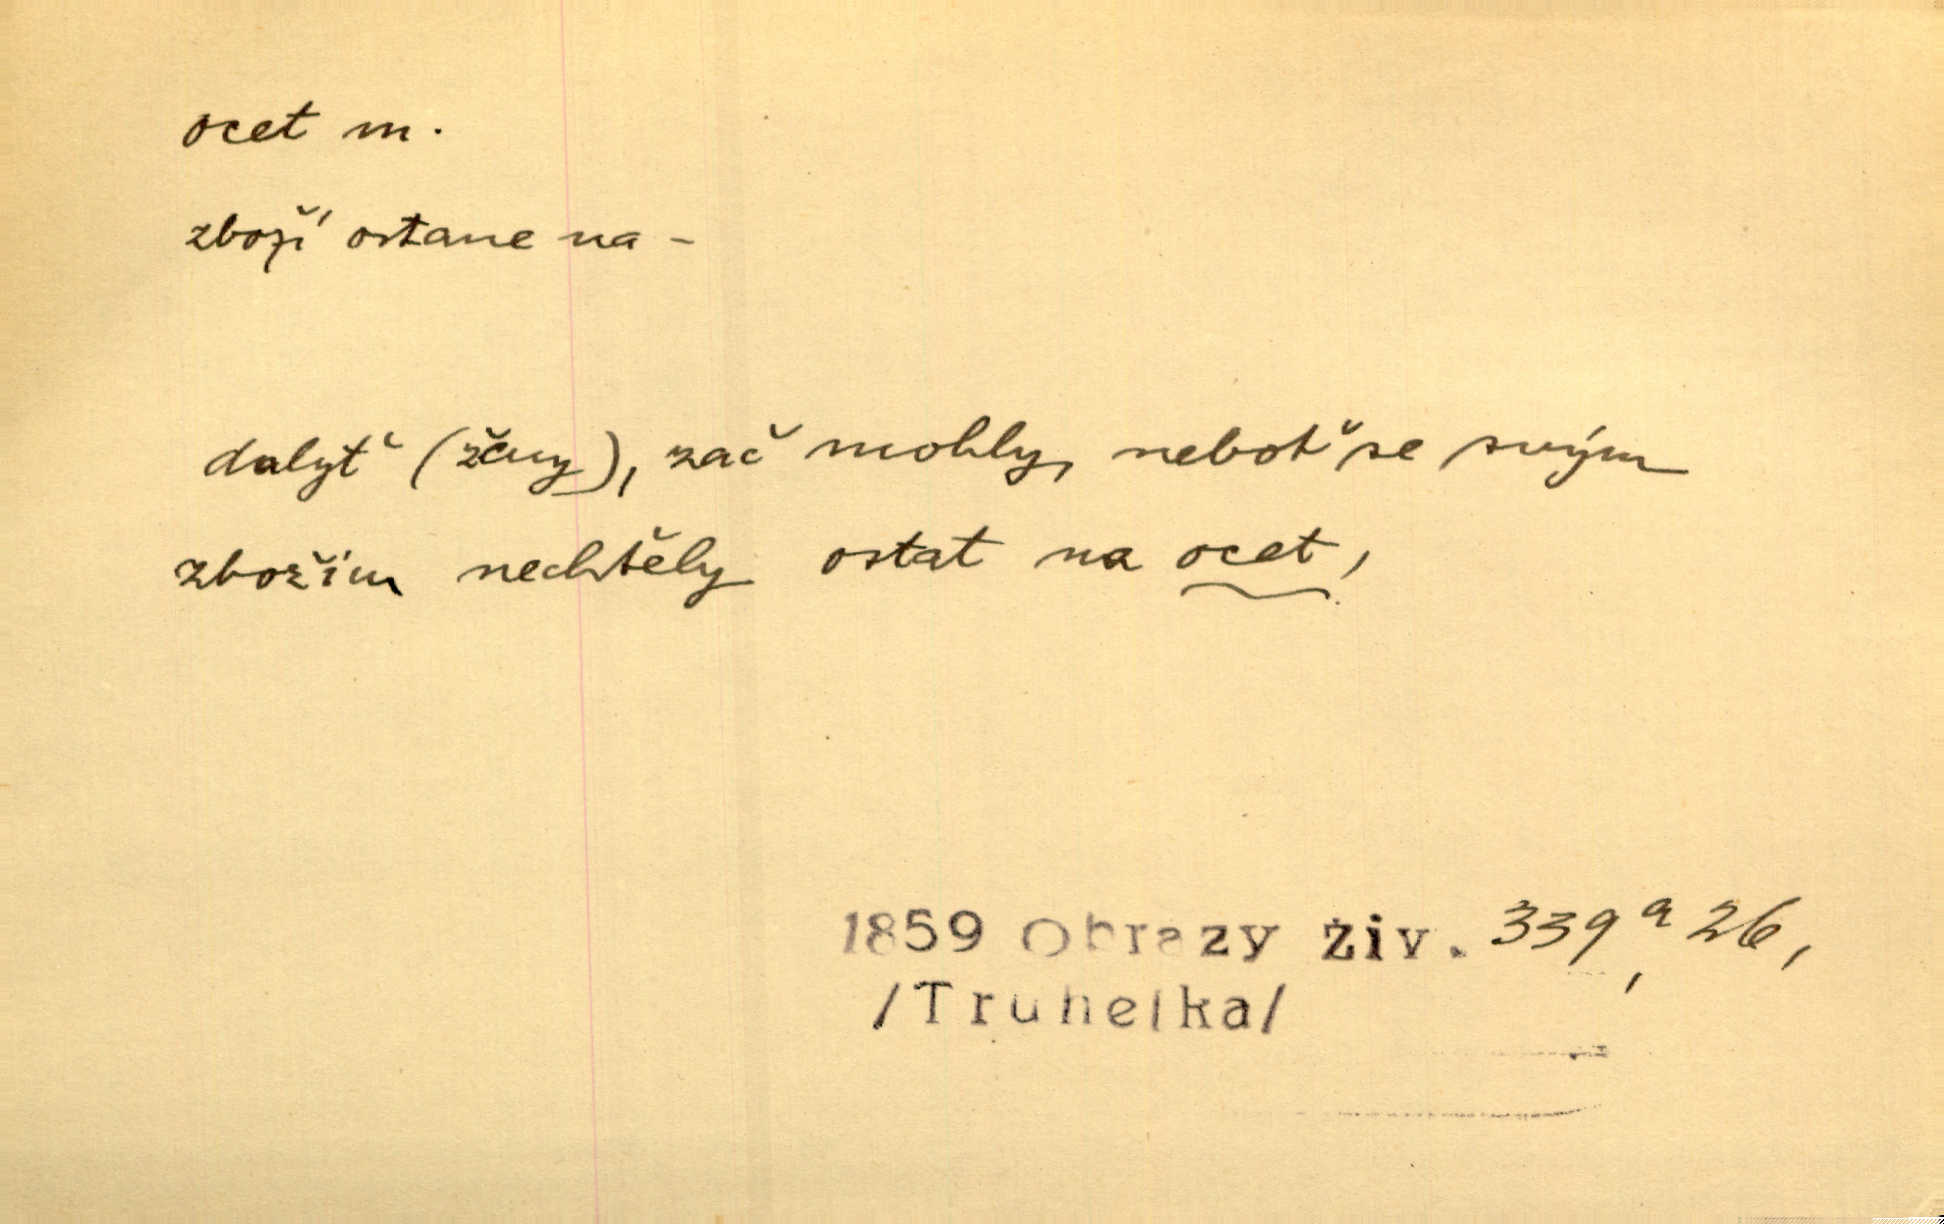 ocet m.
zboží ostane na -
dalyť (ženy), zač mohly, neboť se svým
zbožím nechtěly ostat na ocet,
1859 Obrazy živ. 339, a 26,
/Truhelka/